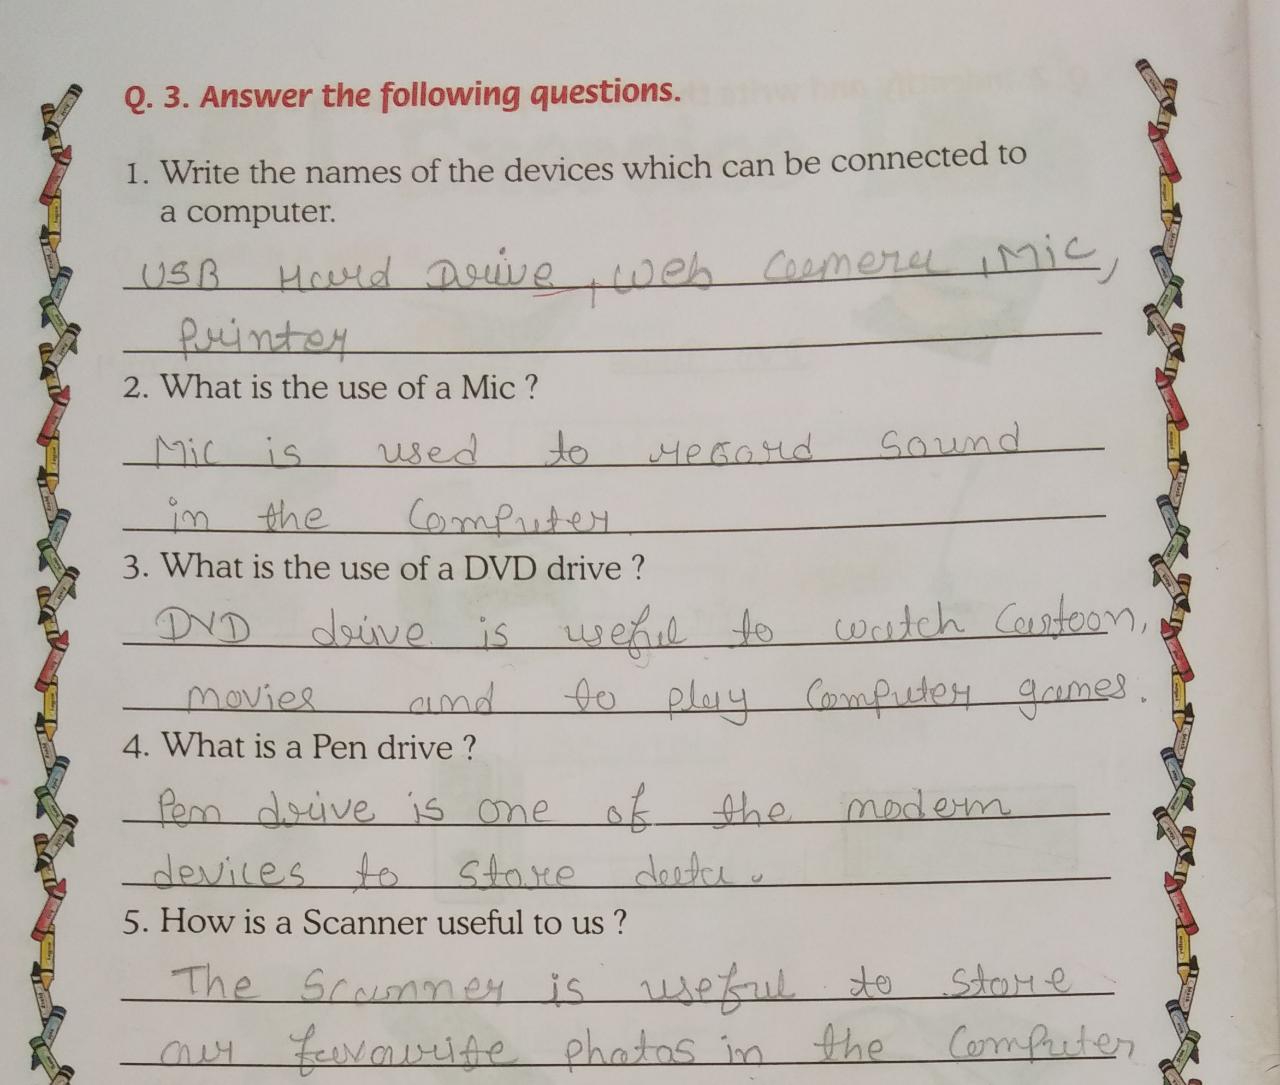 Q. 3. Answer the following questions.
1. Write the names of the devices which can be connected to
a computer.
USB Hard Drive, Web Camera, Mic,
Printer
2. What is the use of a Mic ?
Mic is used to record sound
in the Computer
3. What is the use of a DVD drive ?
DVD drive is useful to watch Cartoon,
movies and to play Computer games.
4. What is a Pen drive ?
Pen drive is one of the modern
devices to store data.
5. How is a Scanner useful to us ?
The Scanner is useful to store
our favourite photos in the Computer